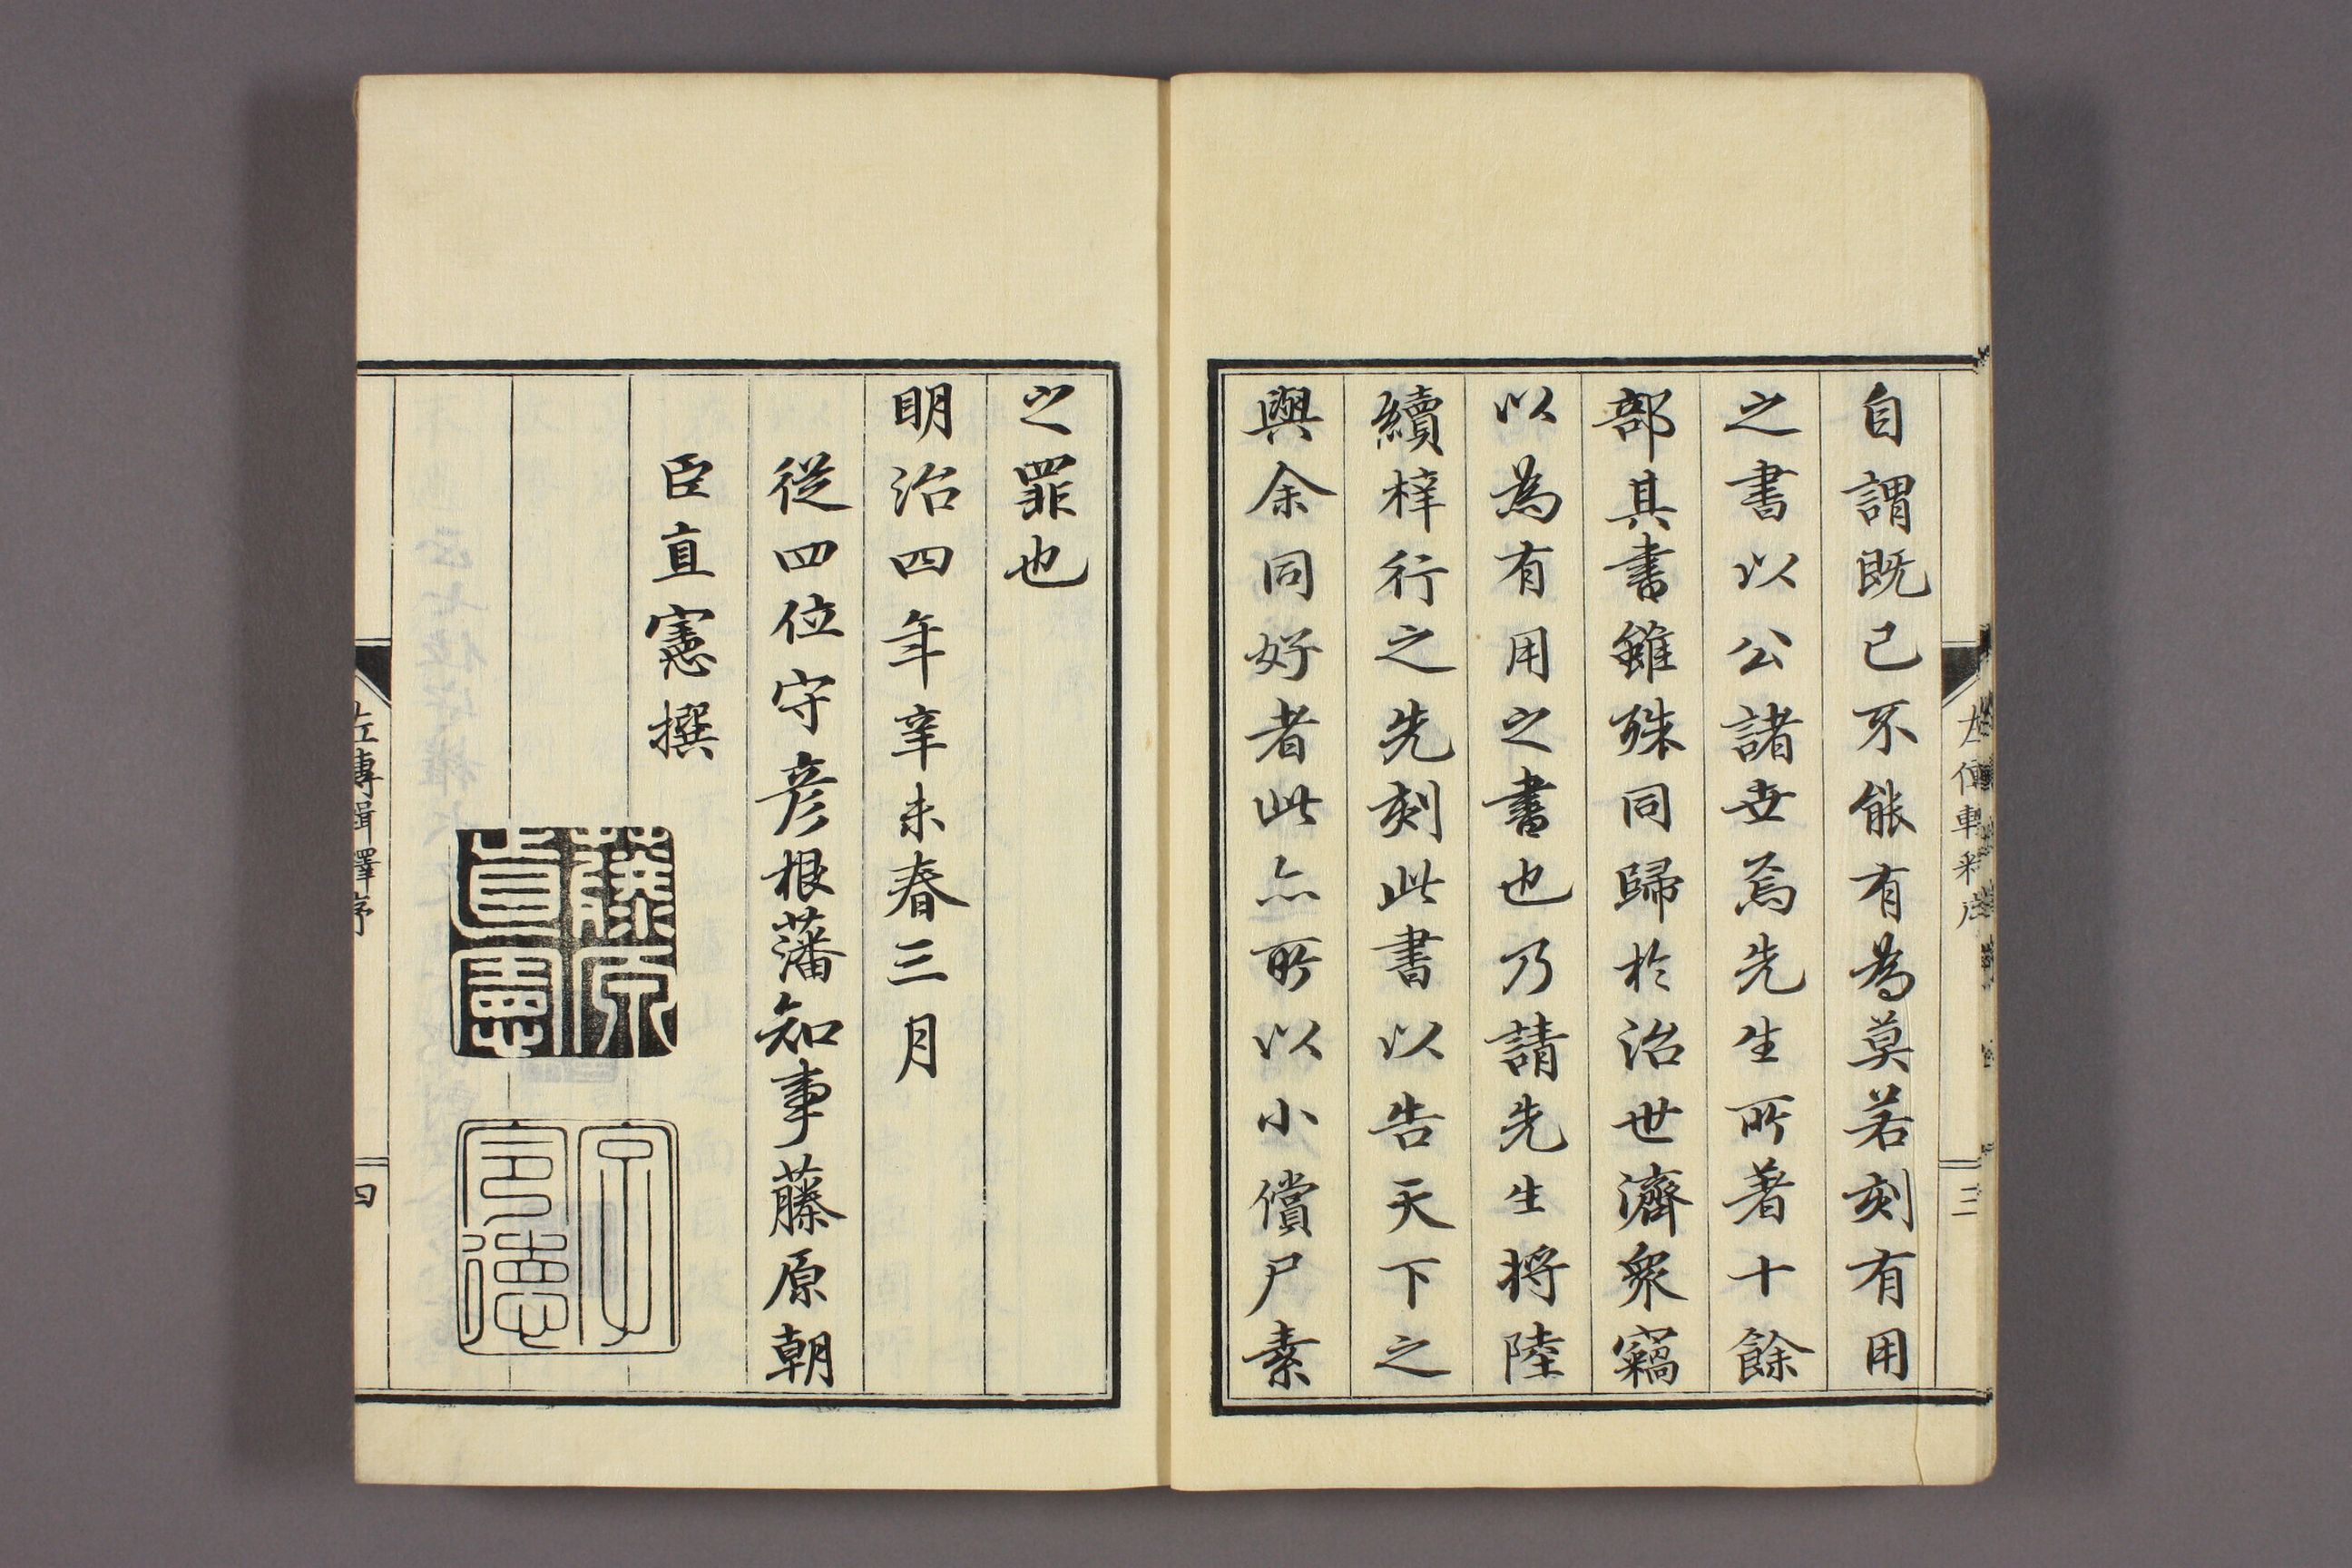 自謂既已不能有為莫若刻有用
之書以公諸世焉先生所著十餘
部其書雖殊同歸於治世濟衆竊
以為有用之書也乃請先生將陸
續梓行之先刻此書以告天下之
與余同好者此亦所以小償尸素
三
之罪也
明治四年辛未春三月
從四位守彦根藩知事藤原朝
臣直憲撰
藤原直憲
字令德
左傳輯釋序
四